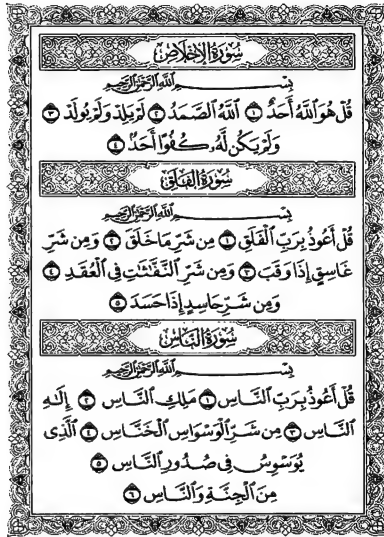 سُورَةُ الإِخْلَاصِ
بِسْمِ ٱللَّهِ ٱلرَّحْمَٰنِ ٱلرَّحِيمِ
قُلْ هُوَ ٱللَّهُ أَحَدٌ ۝١ ٱللَّهُ ٱلصَّمَدُ ۝٢ لَمْ يَلِدْ وَلَمْ يُولَدْ ۝٣
وَلَمْ يَكُن لَّهُۥ كُفُوًا أَحَدٌۢ ۝٤
سُورَةُ الْفَلَقِ
بِسْمِ ٱللَّهِ ٱلرَّحْمَٰنِ ٱلرَّحِيمِ
قُلْ أَعُوذُ بِرَبِّ ٱلْفَلَقِ ۝١ مِن شَرِّ مَا خَلَقَ ۝٢ وَمِن شَرِّ
غَاسِقٍ إِذَا وَقَبَ ۝٣ وَمِن شَرِّ ٱلنَّفَّٰثَٰتِ فِى ٱلْعُقَدِ ۝٤
وَمِن شَرِّ حَاسِدٍ إِذَا حَسَدَ ۝٥
سُورَةُ النَّاسِ
بِسْمِ ٱللَّهِ ٱلرَّحْمَٰنِ ٱلرَّحِيمِ
قُلْ أَعُوذُ بِرَبِّ ٱلنَّاسِ ۝١ مَلِكِ ٱلنَّاسِ ۝٢ إِلَٰهِ
ٱلنَّاسِ ۝٣ مِن شَرِّ ٱلْوَسْوَاسِ ٱلْخَنَّاسِ ۝٤ ٱلَّذِى
يُوَسْوِسُ فِى صُدُورِ ٱلنَّاسِ ۝٥
مِنَ ٱلْجِنَّةِ وَٱلنَّاسِ ۝٦